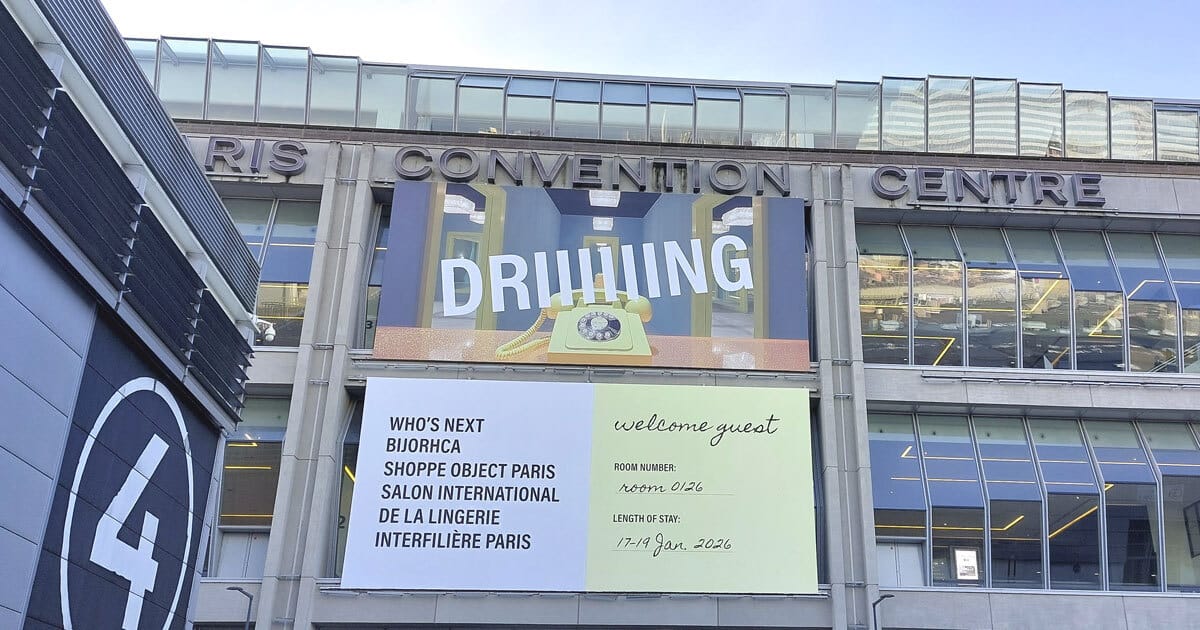 RIS CONVENTION CENTRE
DRIIIIIIING
WHO'S NEXT
BIJORHCA
SHOPPE OBJECT PARIS
SALON INTERNATIONAL
DE LA LINGERIE
INTERFILIÈRE PARIS
welcome guest
ROOM NUMBER:
room 0126
LENGTH OF STAY:
17-19 Jan. 2026
4